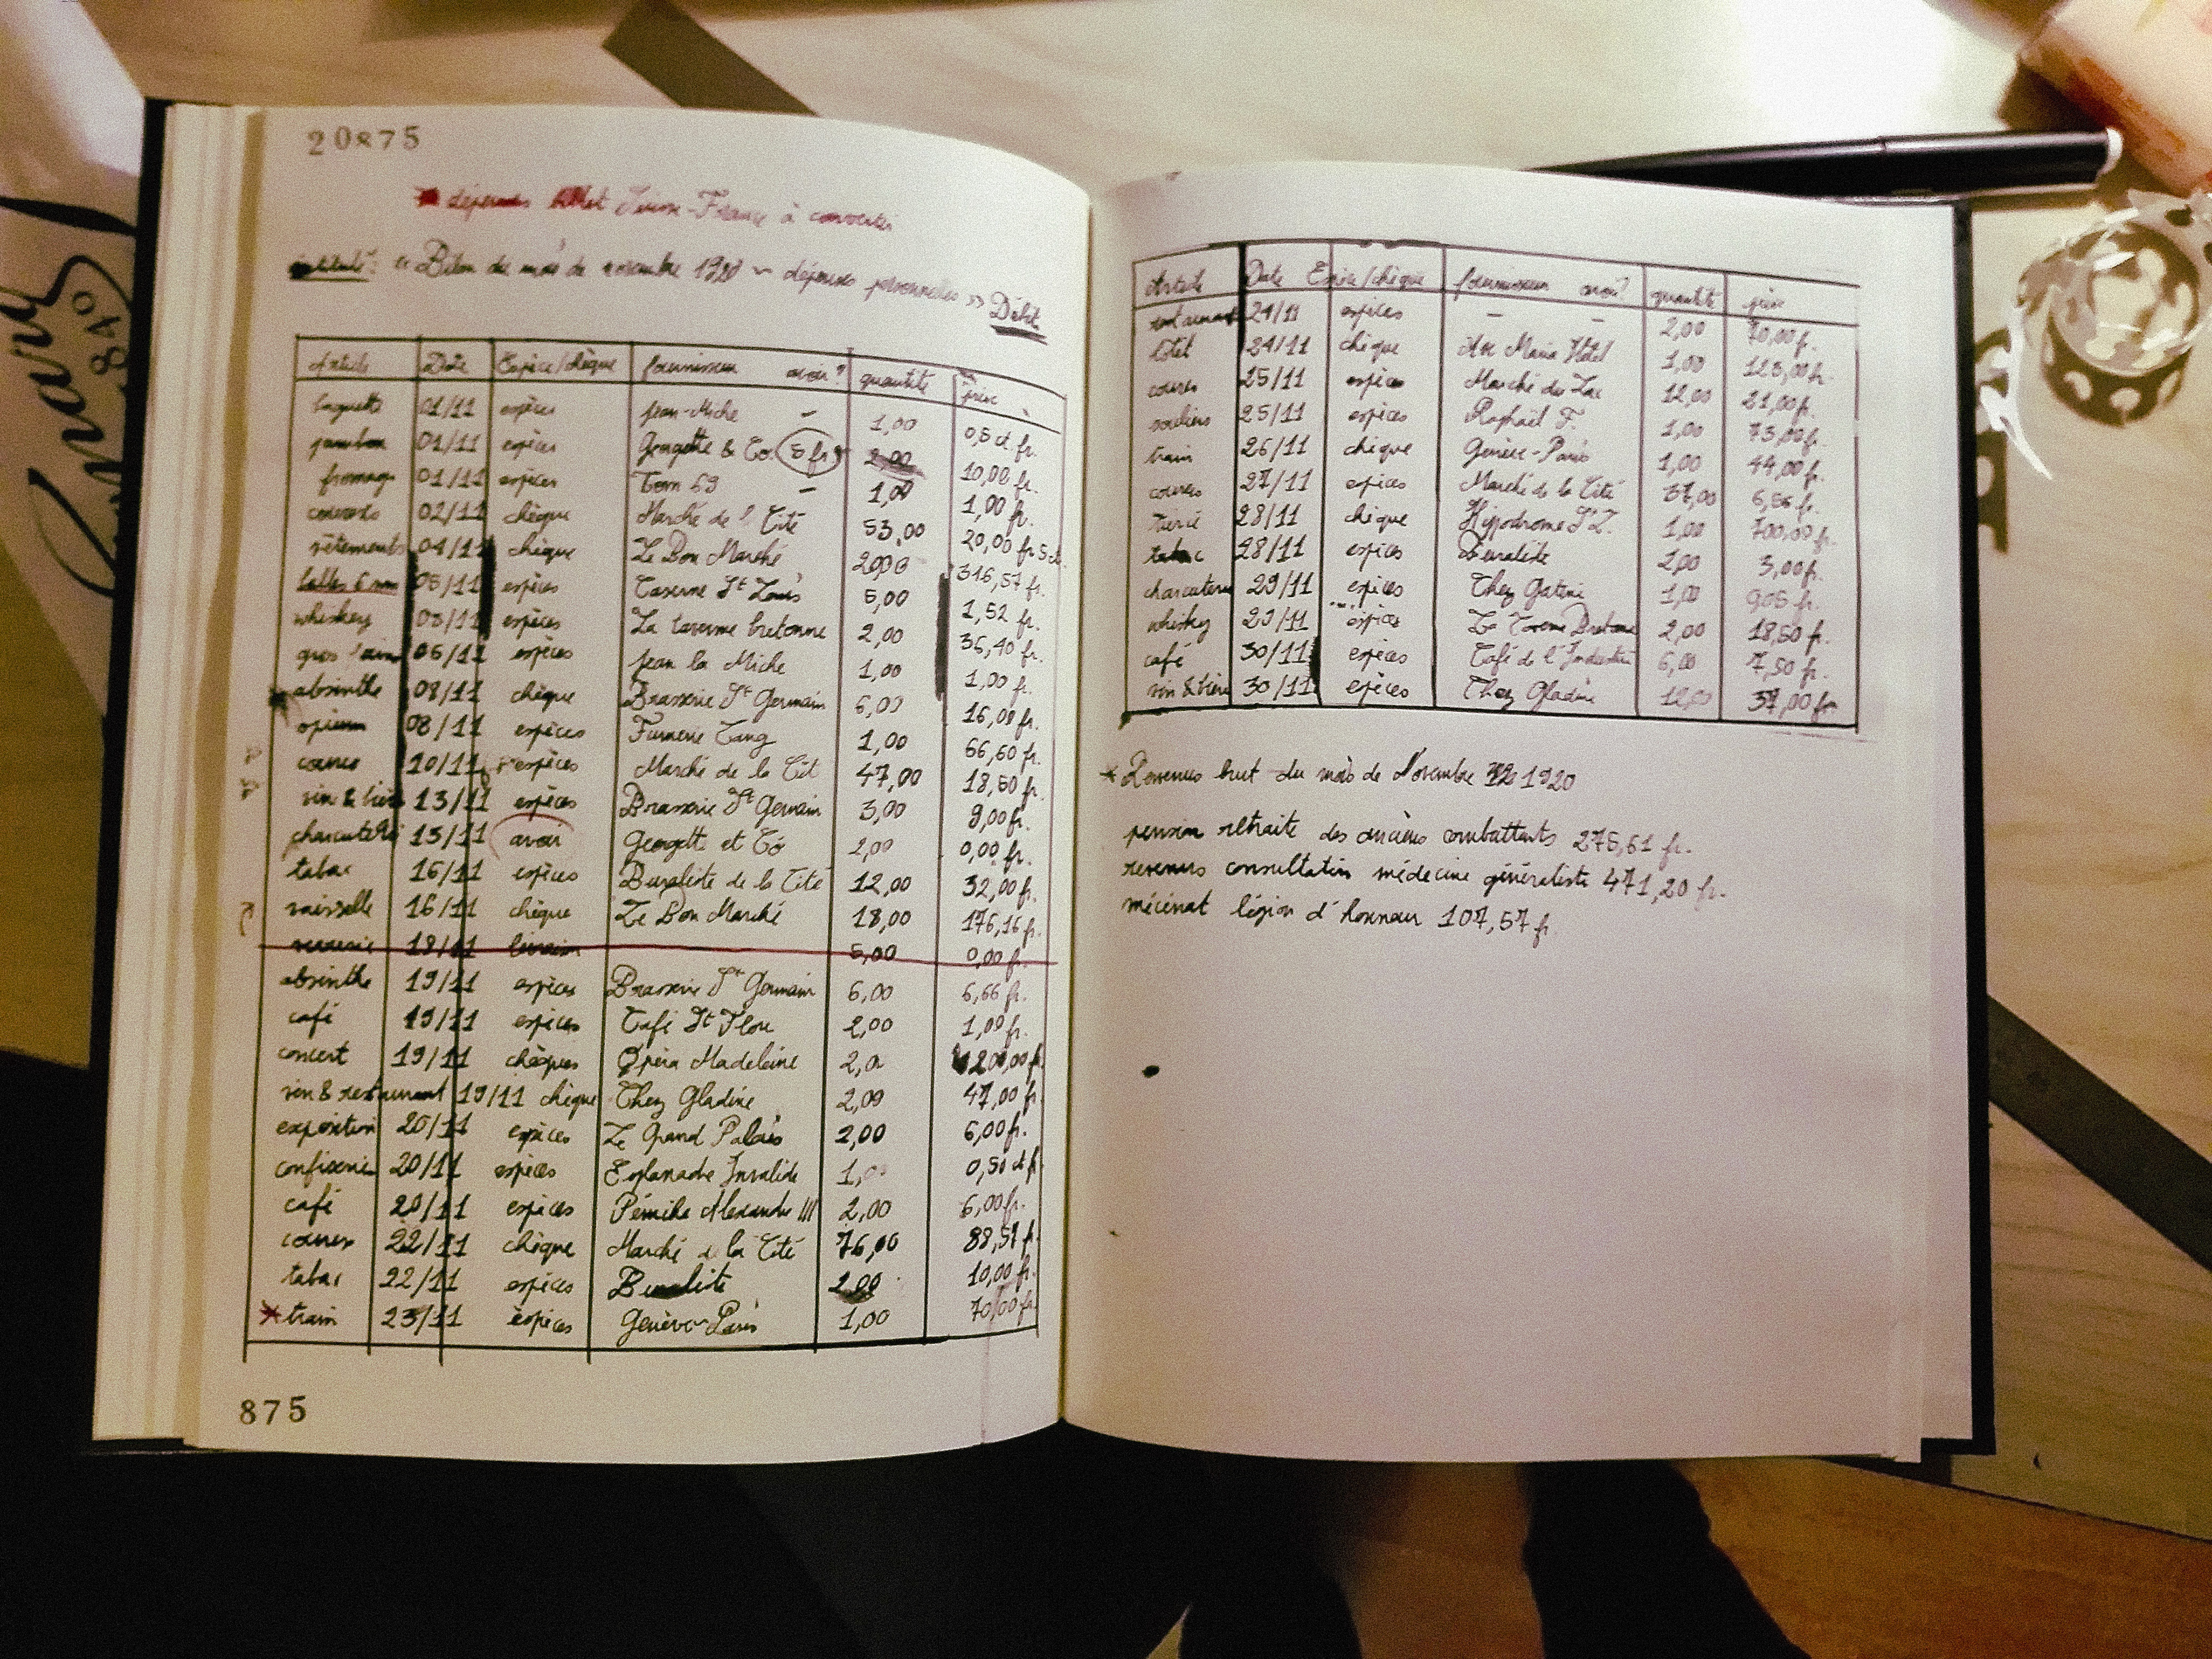 20875
dépenses Suisse-France à convertir
"Bilan du mois de novembre 1920 ~ dépenses personnelles" Débit
Article Date Espèce/chèque fournisseur avoir? quantité prix
baguette 01/11 espèces Jean-Miche – 1,00 0,5 ct fr.
jambon 01/11 espèces Georgette & Co. 5 fr 2,00 10,00 fr.
fromage 01/11 espèces Tom 69 – 1,00 1,00 fr.
courses 02/11 chèque Marché de l Cité 53,00 20,00 fr 5 ct
vêtements 04/11 chèque Le Bon Marché 316,57 fr.
balles 6 mm 05/11 espèces Caserne St Louis 5,00 1,52 fr.
whiskey 05/11 espèces La taverne bretonne 2,00 36,40 fr.
gros pain 06/11 espèces Jean la Miche 1,00 1,00 fr.
absinthe 08/11 chèque Brasserie St Germain 6,00 16,00 fr.
opium 08/11 espèces Fumerie Tang 1,00 66,60 fr.
courses 10/11 espèces Marché de la Cit 47,00 18,50 fr.
vin & bière 13/11 espèces Brasserie St Germain 3,00 9,00 fr.
charcuterie 15/11 avoir Georgett et Co 2,00 0,00 fr.
tabac 16/11 espèces Buraliste de la Cité 12,00 32,00 fr.
vaisselle 16/11 chèque Le Bon Marché 18,00 176,16 fr.
18/11 livraison 5,00 0,00 fr.
absinthe 19/11 espèces Brasserie St Germain 6,00 6,66 fr.
café 19/11 espèces Café St Flore 2,00 1,00 fr.
concert 19/11 chèques Opéra Madeleine 200,00 fr.
vin & restaurant 19/11 chèque Chez Gladine 2,00 47,00 fr.
exposition 20/11 espèces Le Grand Palais 2,00 6,00 fr.
confiserie 20/11 espèces Esplanade Invalide 1,00 0,50 ct fr
café 20/11 espèces Péniche Alexandre III 2,00 6,00 fr.
courses 22/11 chèque Marché de la Cité 76,00 88,51 fr.
tabac 22/11 espèces Buraliste 2,00 10,00 fr.
* train 23/11 espèces Genève-Paris 1,00 70,00 fr.
875
Article Date Espèce/chèque fournisseur avoir? quantité prix
restaurant 24/11 espèces – – 2,00 70,00 fr.
hôtel 24/11 chèque Ave Maria Hôtel 1,00 123,00 fr.
courses 25/11 espèces Marché du Lac 12,00 21,00 fr.
souliers 25/11 espèces Raphaël F. 1,00 73,00 fr.
train 26/11 chèque Genève-Paris 1,00 44,00 fr.
courses 27/11 espèces Marché de la Cité 37,00 6,56 fr.
tiercé 28/11 chèque Hippodrome 1,00 700,00 fr.
tabac 28/11 espèces Buraliste 2,00 3,00 fr.
charcuterie 29/11 espèces Chez Gatine 1,00 9,05 fr.
whisky 29/11 espèces La Taverne Bretonne 2,00 18,50 fr.
café 30/11 espèces Café de l'Industrie 6,00 7,50 fr.
vin & bière 30/11 espèces Chez Gladine 12,00 37,00 fr.
* Revenus brut du mois de Novembre 1920
pension retraite des anciens combattants 275,61 fr.
revenus consultation médecine généraliste 471,20 fr.
mécénat légion d'honneur 107,57 fr.